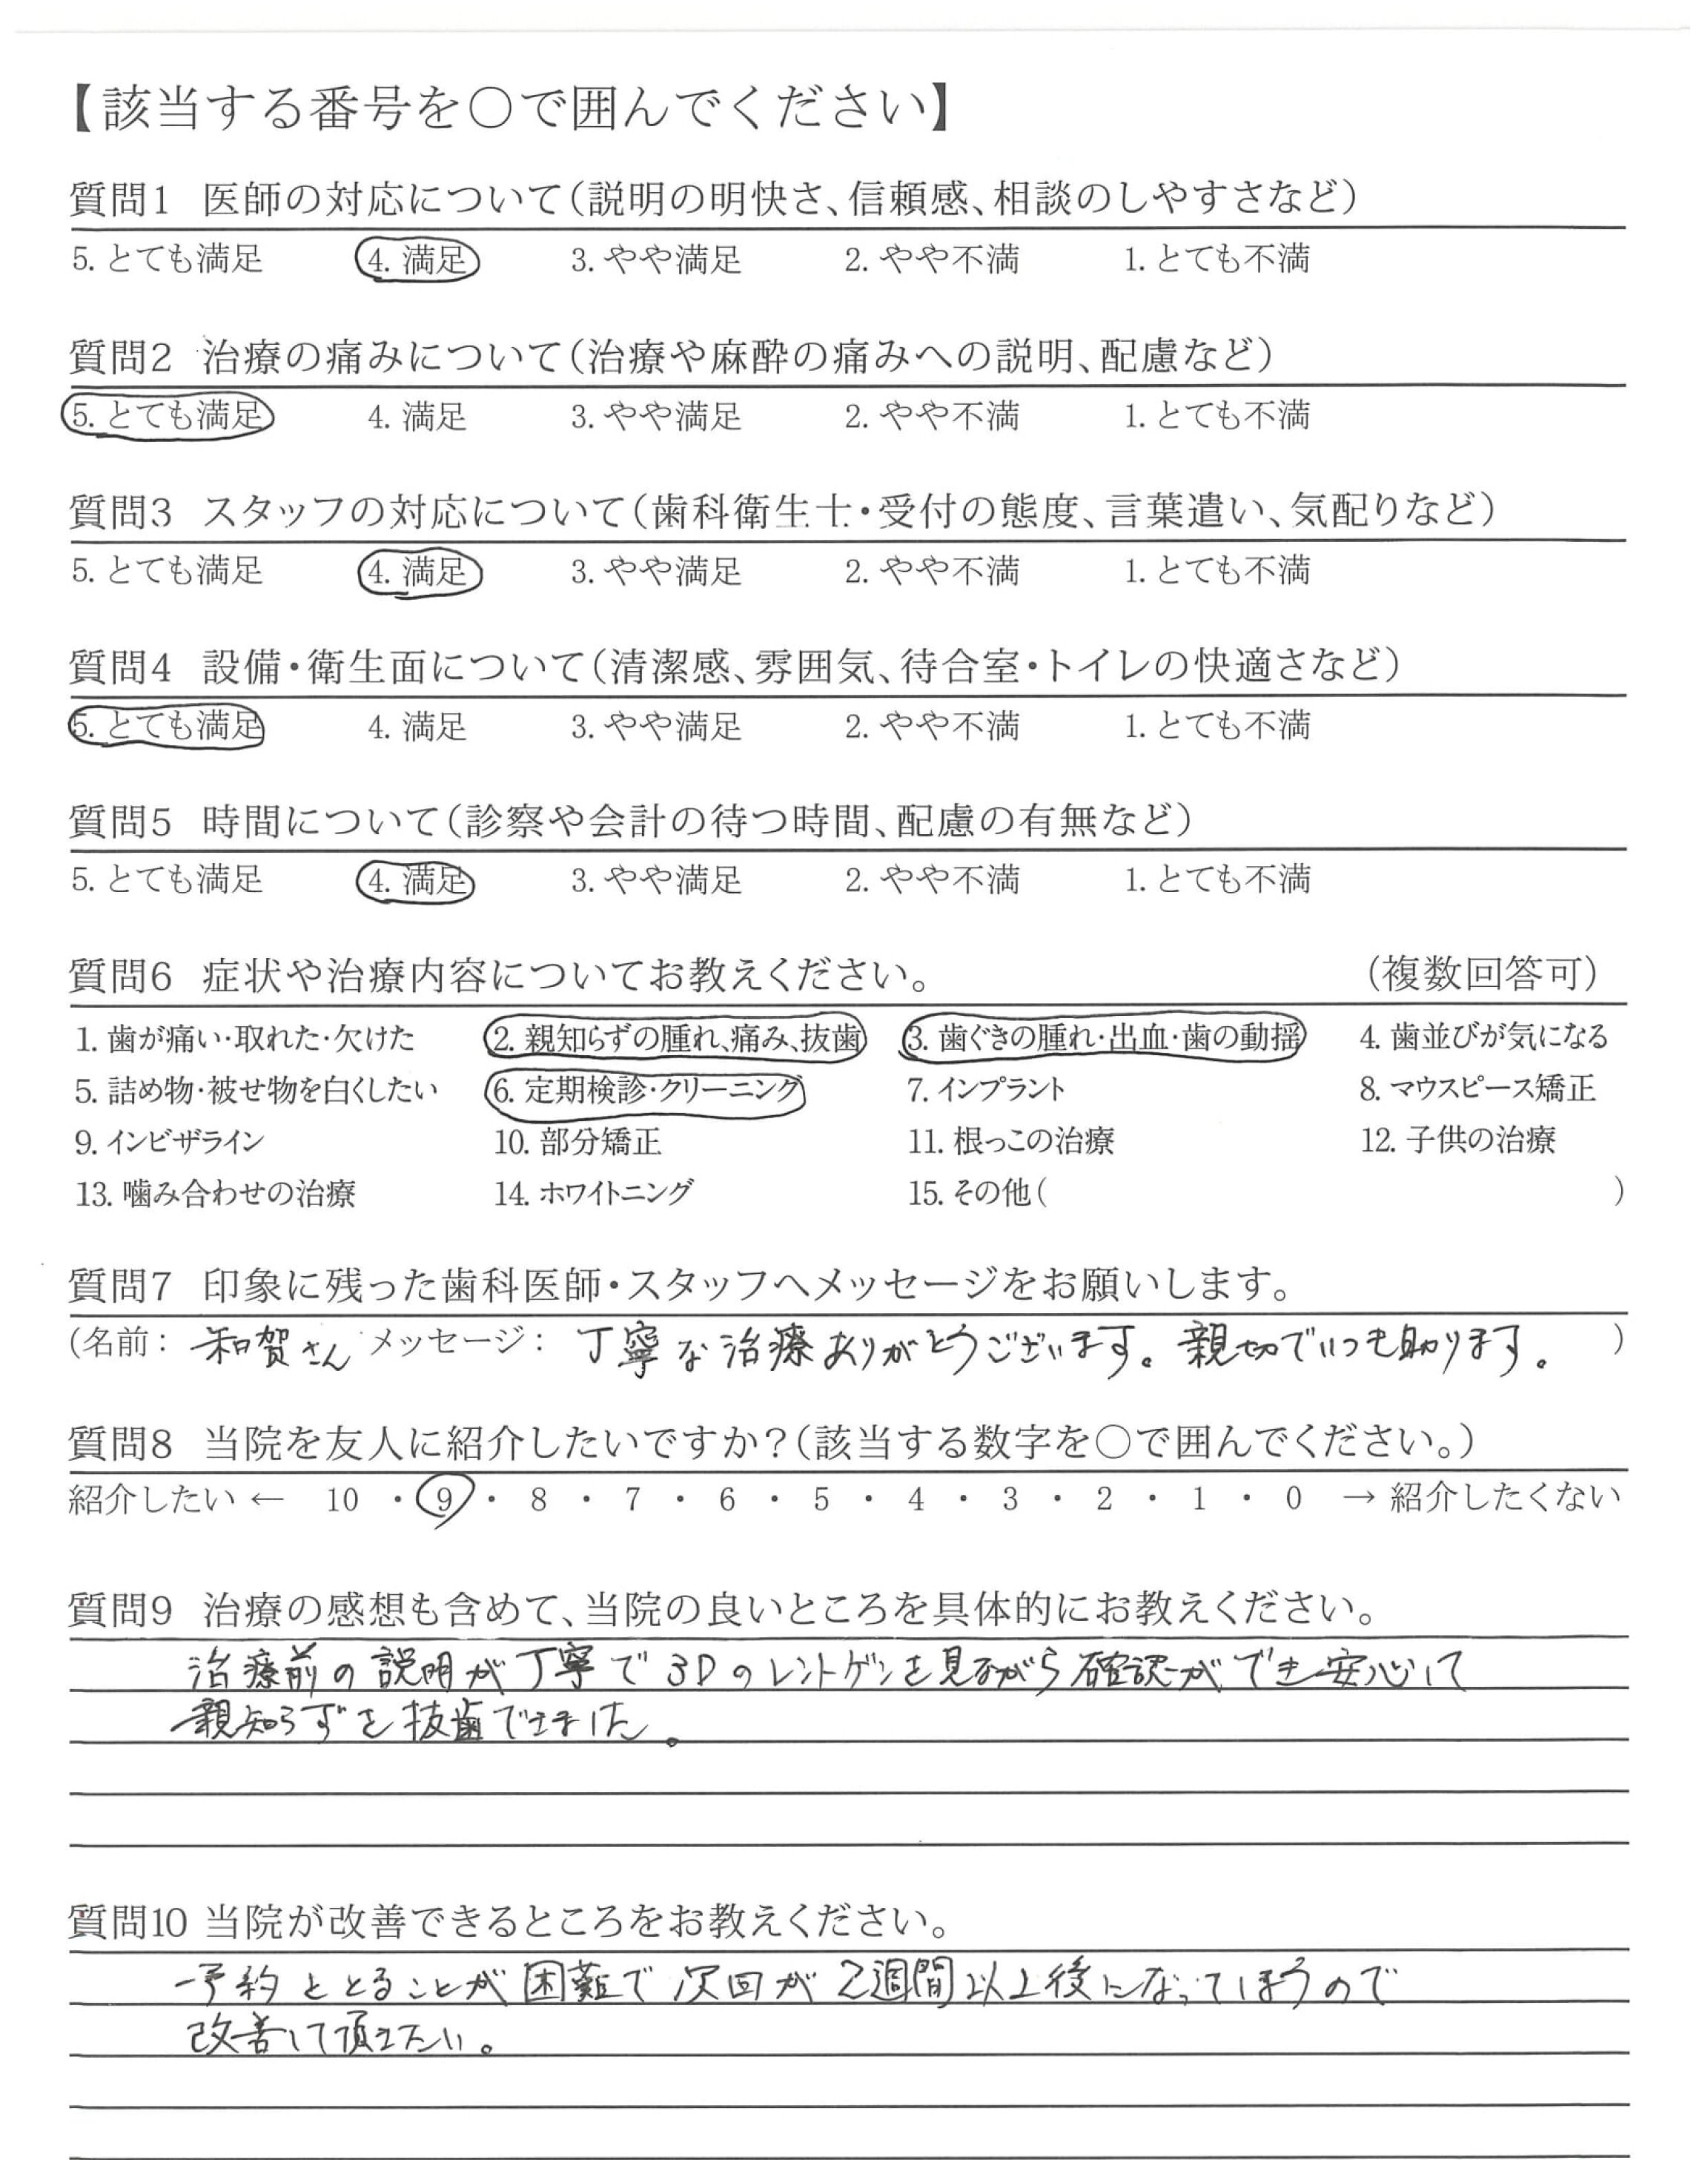 【該当する番号を○で囲んでください】
質問1 医師の対応について(説明の明快さ、信頼感、相談のしやすさなど)
5. とても満足 4. 満足 3. やや満足 2. やや不満 1. とても不満
質問2 治療の痛みについて(治療や麻酔の痛みへの説明、配慮など)
5. とても満足 4. 満足 3. やや満足 2. やや不満 1. とても不満
質問3 スタッフの対応について(歯科衛生士・受付の態度、言葉遣い、気配りなど)
5. とても満足 4. 満足 3. やや満足 2. やや不満 1. とても不満
質問4 設備・衛生面について(清潔感、雰囲気、待合室・トイレの快適さなど)
5. とても満足 4. 満足 3. やや満足 2. やや不満 1. とても不満
質問5 時間について(診察や会計の待つ時間、配慮の有無など)
5. とても満足 4. 満足 3. やや満足 2. やや不満 1. とても不満
質問6 症状や治療内容についてお教えください。 (複数回答可)
1. 歯が痛い・取れた・欠けた 2. 親知らずの腫れ、痛み、抜歯 3. 歯ぐきの腫れ・出血・歯の動揺 4. 歯並びが気になる
5. 詰め物・被せ物を白くしたい 6. 定期検診・クリーニング 7. インプラント 8. マウスピース矯正
9. インビザライン 10. 部分矯正 11. 根っこの治療 12. 子供の治療
13. 噛み合わせの治療 14. ホワイトニング 15. その他( )
質問7 印象に残った歯科医師・スタッフへメッセージをお願いします。
(名前: 和賀さん メッセージ: 丁寧な治療ありがとうございます。親切でいつも助ります。 )
質問8 当院を友人に紹介したいですか?(該当する数字を○で囲んでください。)
紹介したい ← 10 ・ 9 ・ 8 ・ 7 ・ 6 ・ 5 ・ 4 ・ 3 ・ 2 ・ 1 ・ 0 → 紹介したくない
質問9 治療の感想も含めて、当院の良いところを具体的にお教えください。
治療前の説明が丁寧で3Dのレントゲンを見ながら確認ができ安心して
親知らずを抜歯できました。
質問10 当院が改善できるところをお教えください。
予約をとることが困難で次回が2週間以上後になってしまうので
改善して頂きたい。